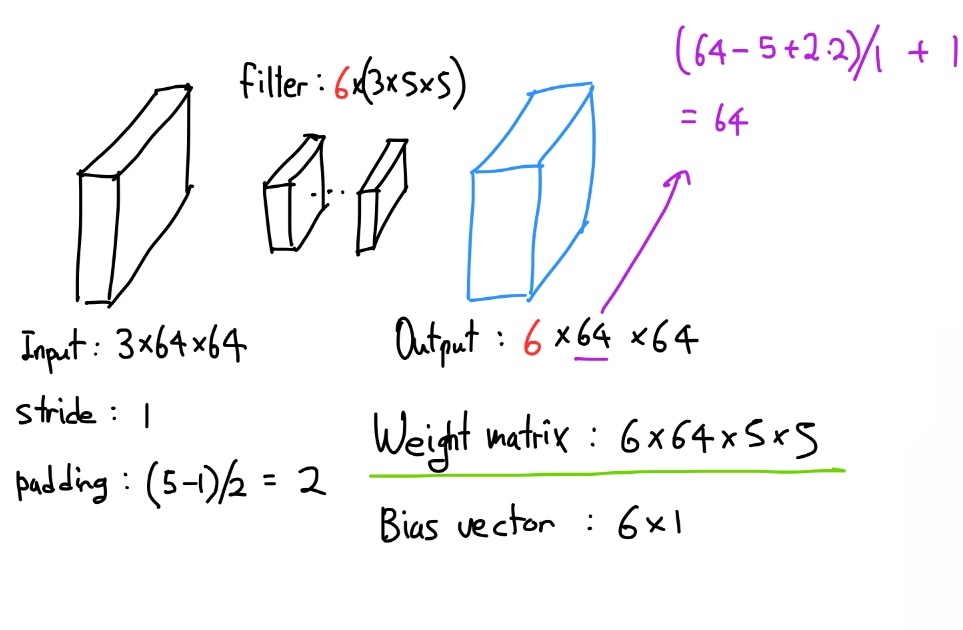 (64-5+2.2)/1 + 1
= 64
filter : 6x(3x5x5)
Input : 3x64x64
Output : 6 x64 x64
stride : 1
padding : (5-1)/2 = 2
Weight matrix : 6x64x5x5
Bias vector : 6x1